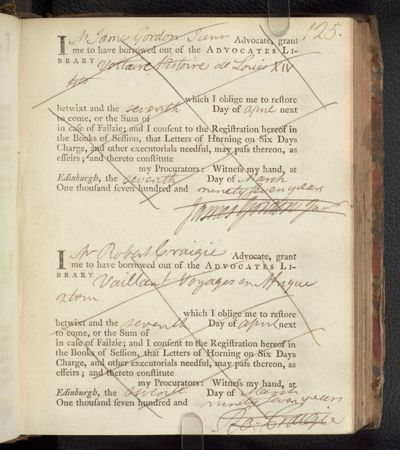 125.
I Mr James Gordon Junr Advocate, grant
me to have borrowed out of the ADVOCATES LI-
BRARY Voltaire Histoire de Louis XIV
betwixt and the seventh which I oblige me to restore
Day of april next
to come, or the Sum of
in case of Failzie; and I consent to the Registration hereof in
the Books of Session, that Letters of Horning on Six Days
Charge, and other executorials needful, may pass thereon, as
effeirs; and thereto constitute
my Procurators: Witness my hand, at
Edinburgh, the seventh Day of March
One thousand seven hundred and ninety seven years
James Gordon Junr
I Mr Robert Craigie Advocate, grant
me to have borrowed out of the ADVOCATES LI-
BRARY Vaillant Voyages en Afrique
2 tom
which I oblige me to restore
betwixt and the seventh Day of april next
to come, or the Sum of
in case of Failzie; and I consent to the Registration hereof in
the Books of Session, that Letters of Horning on Six Days
Charge, and other executorials needful, may pass thereon, as
effeirs; and thereto constitute
my Procurators: Witness my hand, at
Edinburgh, the seventh Day of March
One thousand seven hundred and ninety seven years
Ro. Craigie